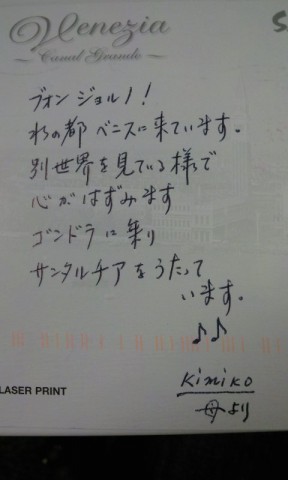 Venezia
~ Canal Grande ~
ブォン ジョルノ!
水の都 ベニスに来ています。
別世界を見ている様で
心がはずみます
ゴンドラに乗り
サンタルチアをうたって
います。
♪♪
LASER PRINT
Kimiko
母より